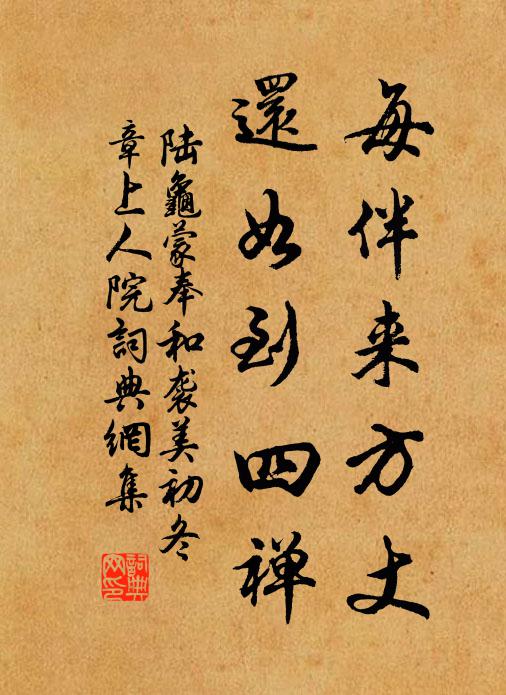 每伴来方丈
還如到四禅
陆龜蒙奉和袭美初冬
章上人院詞典網集
詞典网印